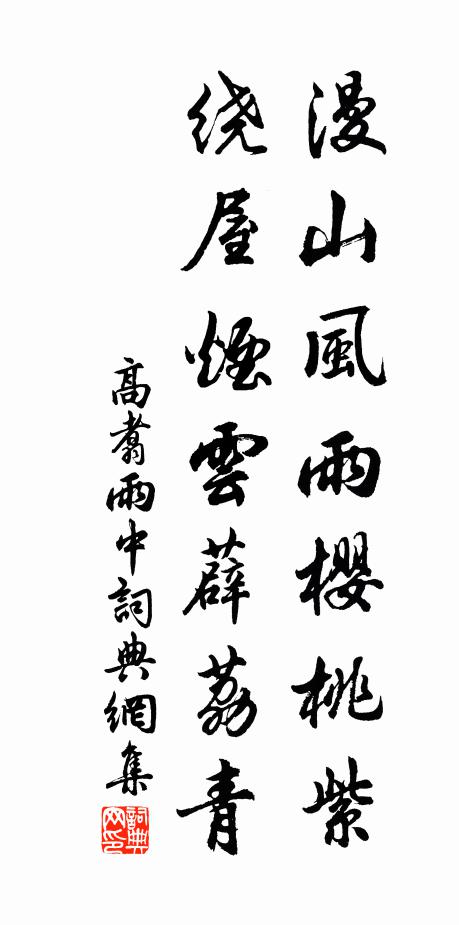 漫山風雨櫻桃紫
绕屋煙雲薜荔青
高翥雨中詞典網集
詞典網印